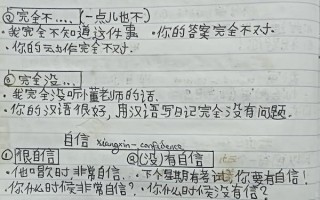 ② 完全不.... (一点儿也不)
· 我完全不知道这件事 · 你的答案完全不对.
· 你的动作完全不对.
③ 完全没....
· 我完全没听懂老师的话.
· 你的汉语很好, 用汉语写日记完全没有问题.
自信 - confidence
① 很自信 ② (没)有自信
· 他唱歌时非常自信. · 下个星期有考试, 你要有自信!
· 你什么时候非常自信? · 你什么时候没有信?